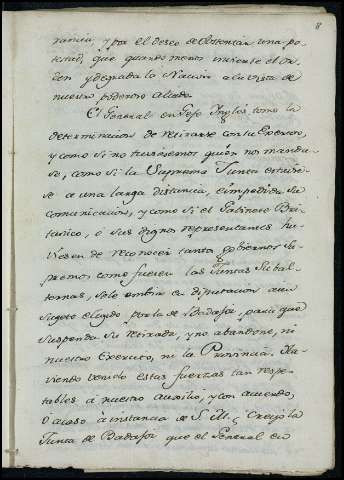 8
rancia, y por el deseo de obstentar una po-
testad, que quando menos invierte el or-
den y degrada la Nacion a la vista de
nuestro poderoso Aliado.
El General en Gefe Ynglés tomó la
determinacion de retirarse con su Exercito,
y como si no tuviesemos quien nos manda-
se, como si la Suprema Junta estuvie-
se a una larga distancia, e impedida su
comunicacion, y como si el Gabinete Bri-
tanico, o sus dignos representantes hu-
viesen de reconocer tantos gobiernos Su-
premos como fueren las Juntas Subal-
ternas, se le embia en diputacion aun
sugeto elegido por la de Badajoz, para que
suspenda su retirada, y no abandone, ni
nuestro Exercito, ni la Provincia. Ha-
viendo venido estas fuerzas tan respe-
tables a nuestro auxilio, y con acuerdo,
o acaso a instancia de S. M. ¿Creyó la
Junta de Badajoz que el General en